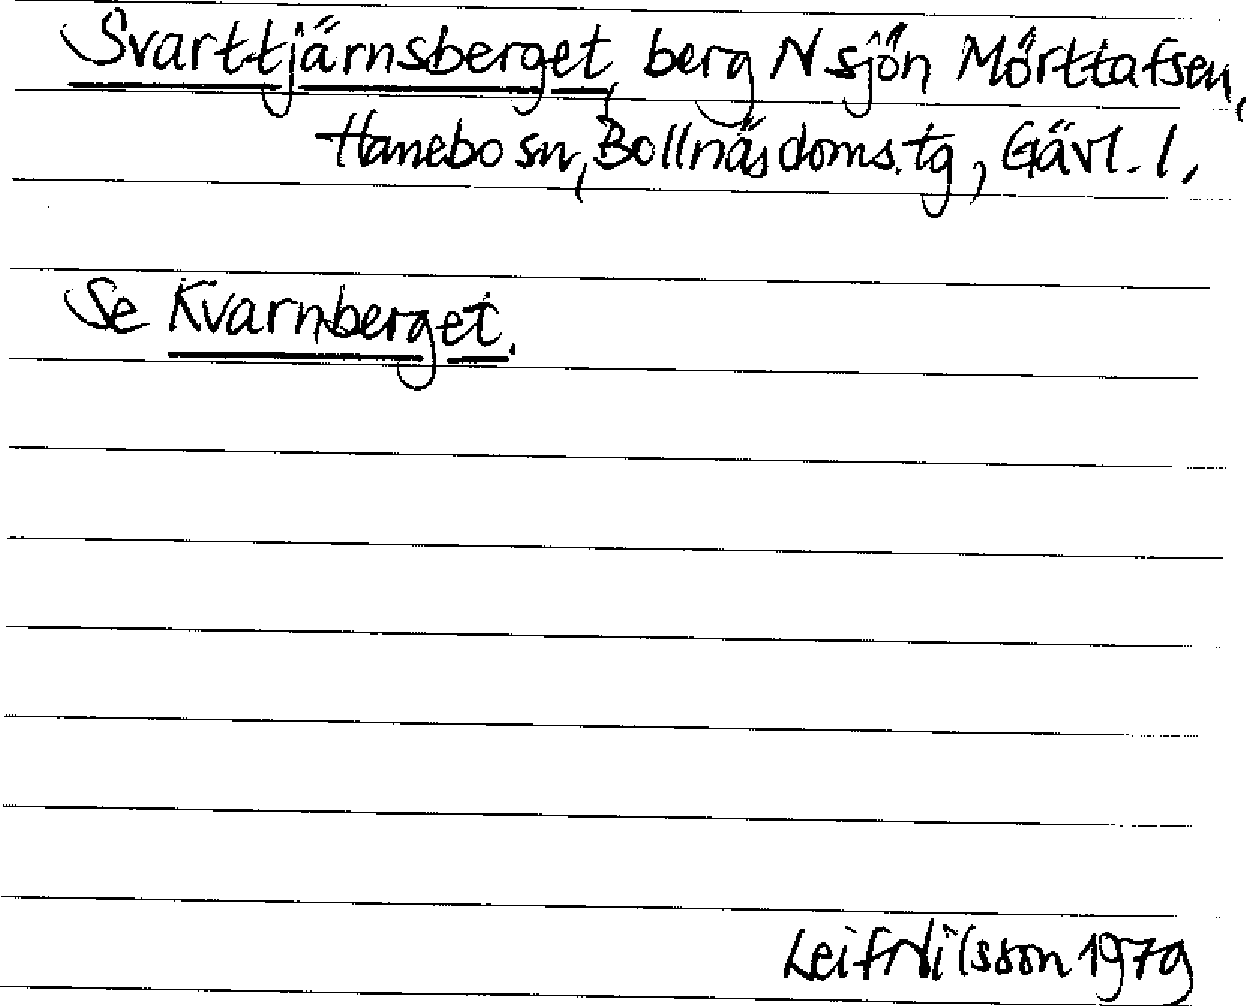 Svarttjärnsberget, berg N sjön Mörttafsen,
Hanebo sn, Bollnäs doms.tg, Gävl. l,
Se Kvarnberget.
Leif Nilsson 1979